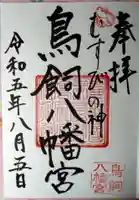 奉拝
むすびの神
鳥飼八幡宮
令和五年八月五日
鳥飼
八幡宮